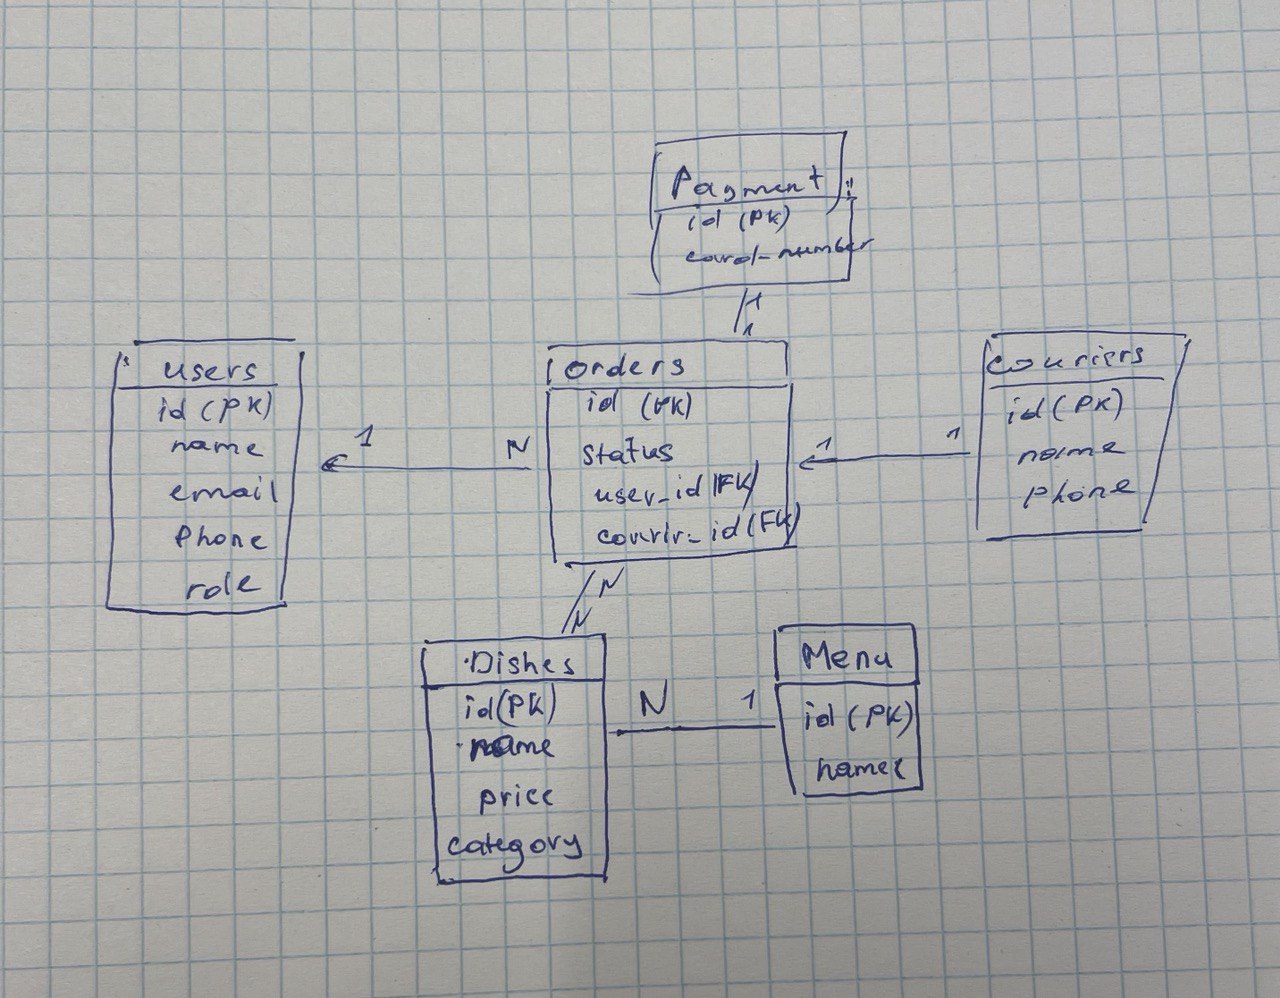 Payment
id (PK)
card-number
1
1
users
id (PK)
name
email
Phone
role
1
N
orders
id (PK)
status
user_id (FK)
courir_id (FK)
1
1
couriers
id (PK)
name
phone
N
N
Dishes
id (PK)
name
price
category
N
1
Menu
id (PK)
name